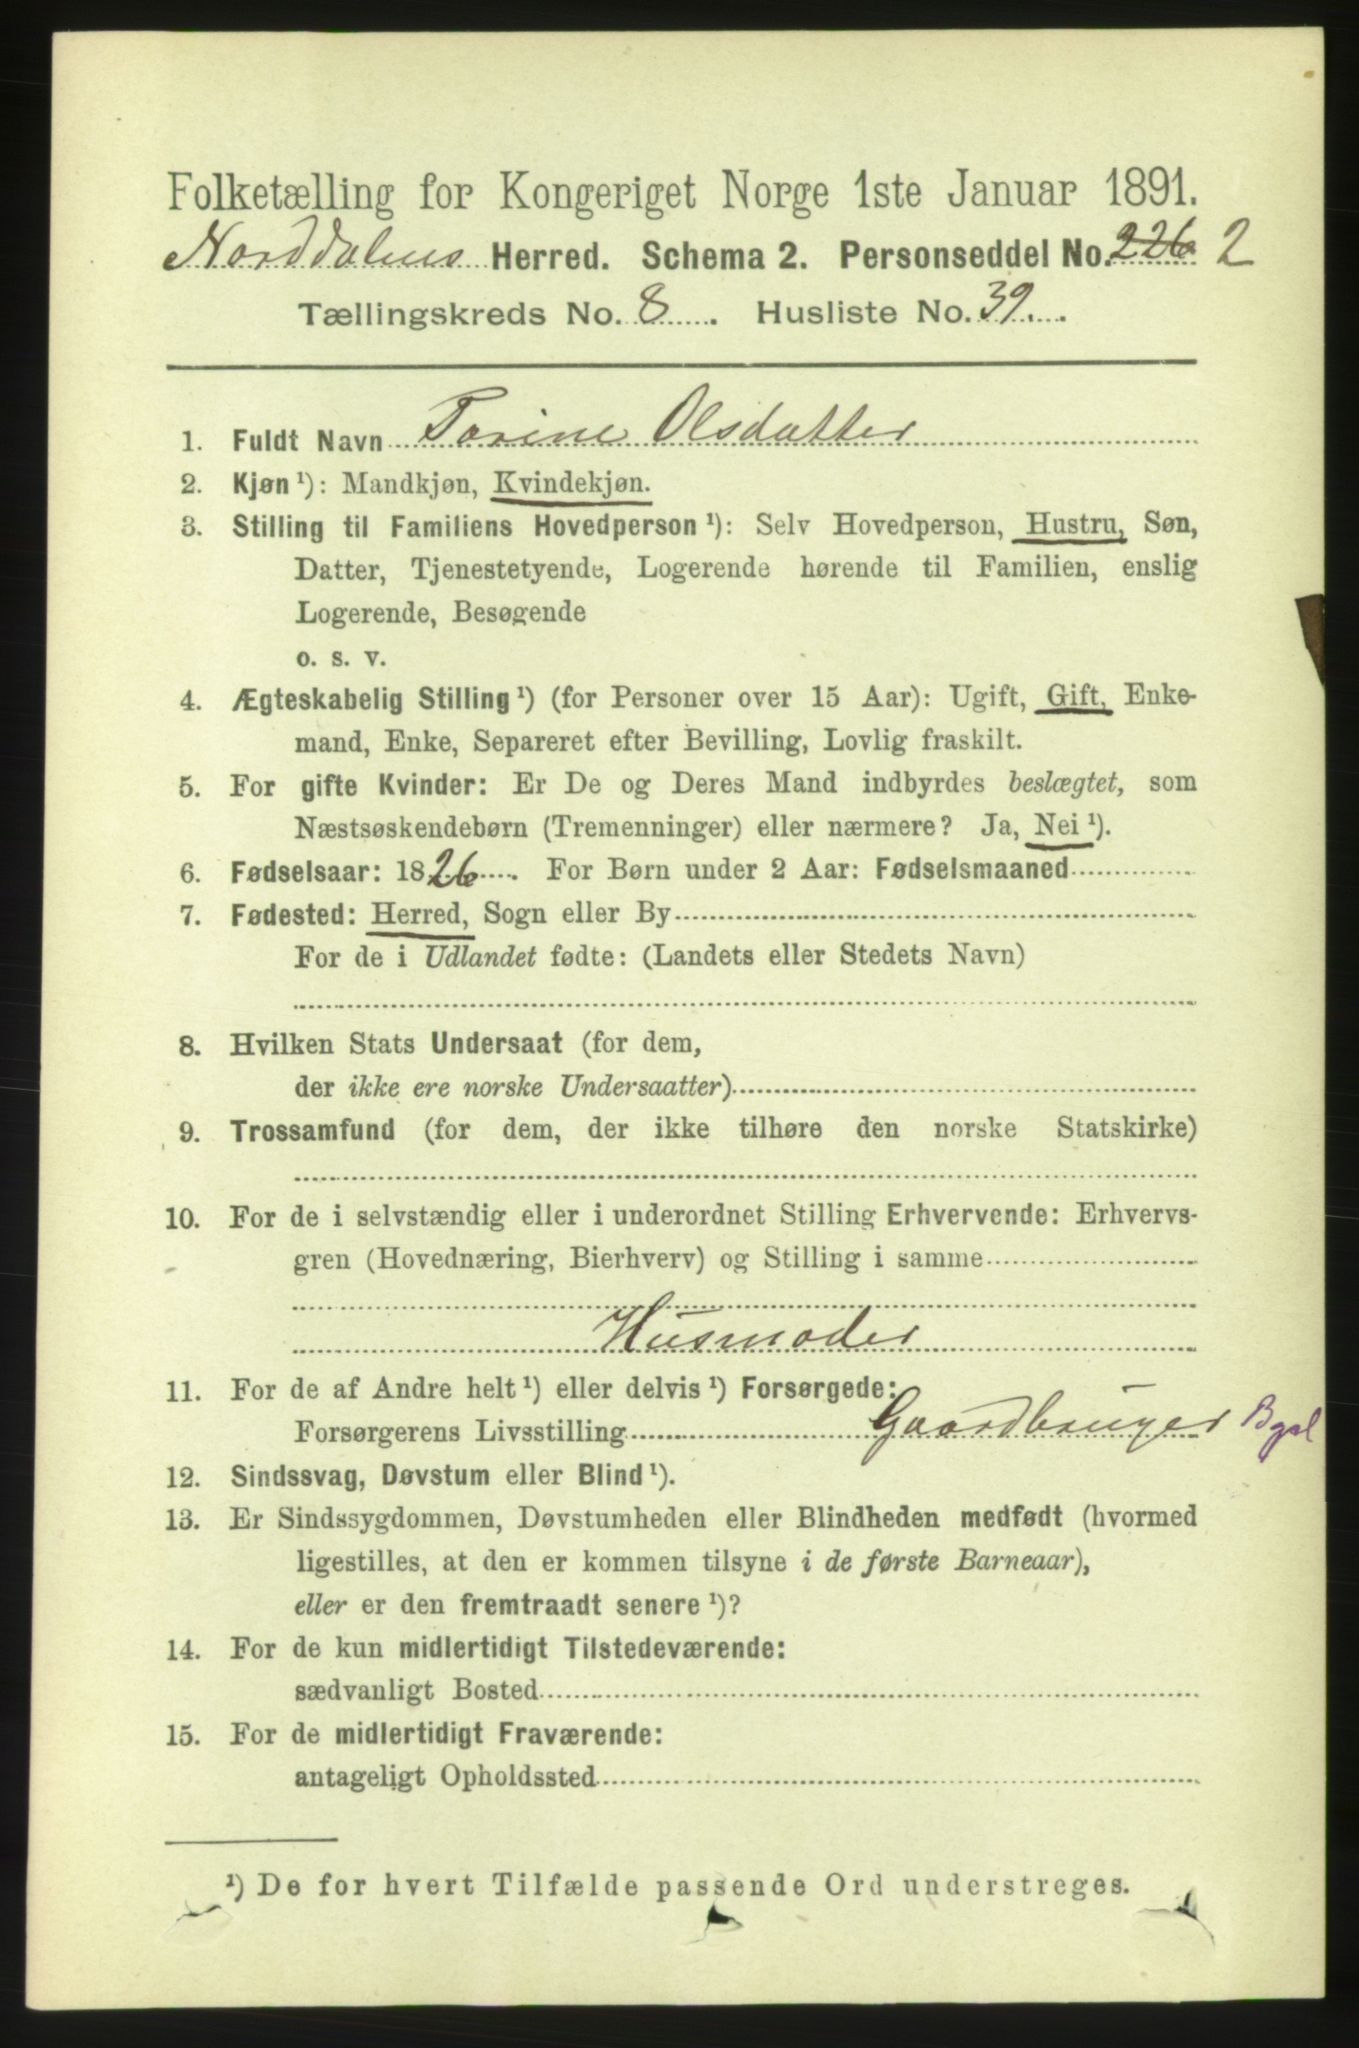 Folketælling for Kongeriget Norge 1ste Januar 1891.
Norddalens Herred. Schema 2. Personseddel No. 226 2
Tællingskreds No. 8. Husliste No. 39.
1. Fuldt Navn Torine Olsdatter
2. Kjøn ¹): Mandkjøn, Kvindekjøn.
3. Stilling til Familiens Hovedperson ¹): Selv Hovedperson, Hustru, Søn,
Datter, Tjenestetyende, Logerende hørende til Familien, enslig
Logerende, Besøgende
o. s. v.
4. Ægteskabelig Stilling ¹) (for Personer over 15 Aar): Ugift, Gift, Enke-
mand, Enke, Separeret efter Bevilling, Lovlig fraskilt.
5. For gifte Kvinder: Er De og Deres Mand indbyrdes beslægtet, som
Næstsøskendebørn (Tremenninger) eller nærmere? Ja, Nei ¹).
6. Fødselsaar: 1826. For Børn under 2 Aar: Fødselsmaaned
7. Fødested: Herred, Sogn eller By
For de i Udlandet fødte: (Landets eller Stedets Navn)
8. Hvilken Stats Undersaat (for dem,
der ikke ere norske Undersaatter)
9. Trossamfund (for dem, der ikke tilhøre den norske Statskirke)
10. For de i selvstændig eller i underordnet Stilling Erhvervende: Erhvervs-
gren (Hovednæring, Bierhverv) og Stilling i samme
Husmoder
11. For de af Andre helt ¹) eller delvis ¹) Forsørgede:
Forsørgerens Livsstilling Gaardbruger
12. Sindssvag, Døvstum eller Blind ¹).
13. Er Sindssygdommen, Døvstumheden eller Blindheden medfødt (hvormed
ligestilles, at den er kommen tilsyne i de første Barneaar),
eller er den fremtraadt senere ¹)?
14. For de kun midlertidigt Tilstedeværende:
sædvanligt Bosted
15. For de midlertidigt Fraværende:
antageligt Opholdssted
¹) De for hvert Tilfælde passende Ord understreges.